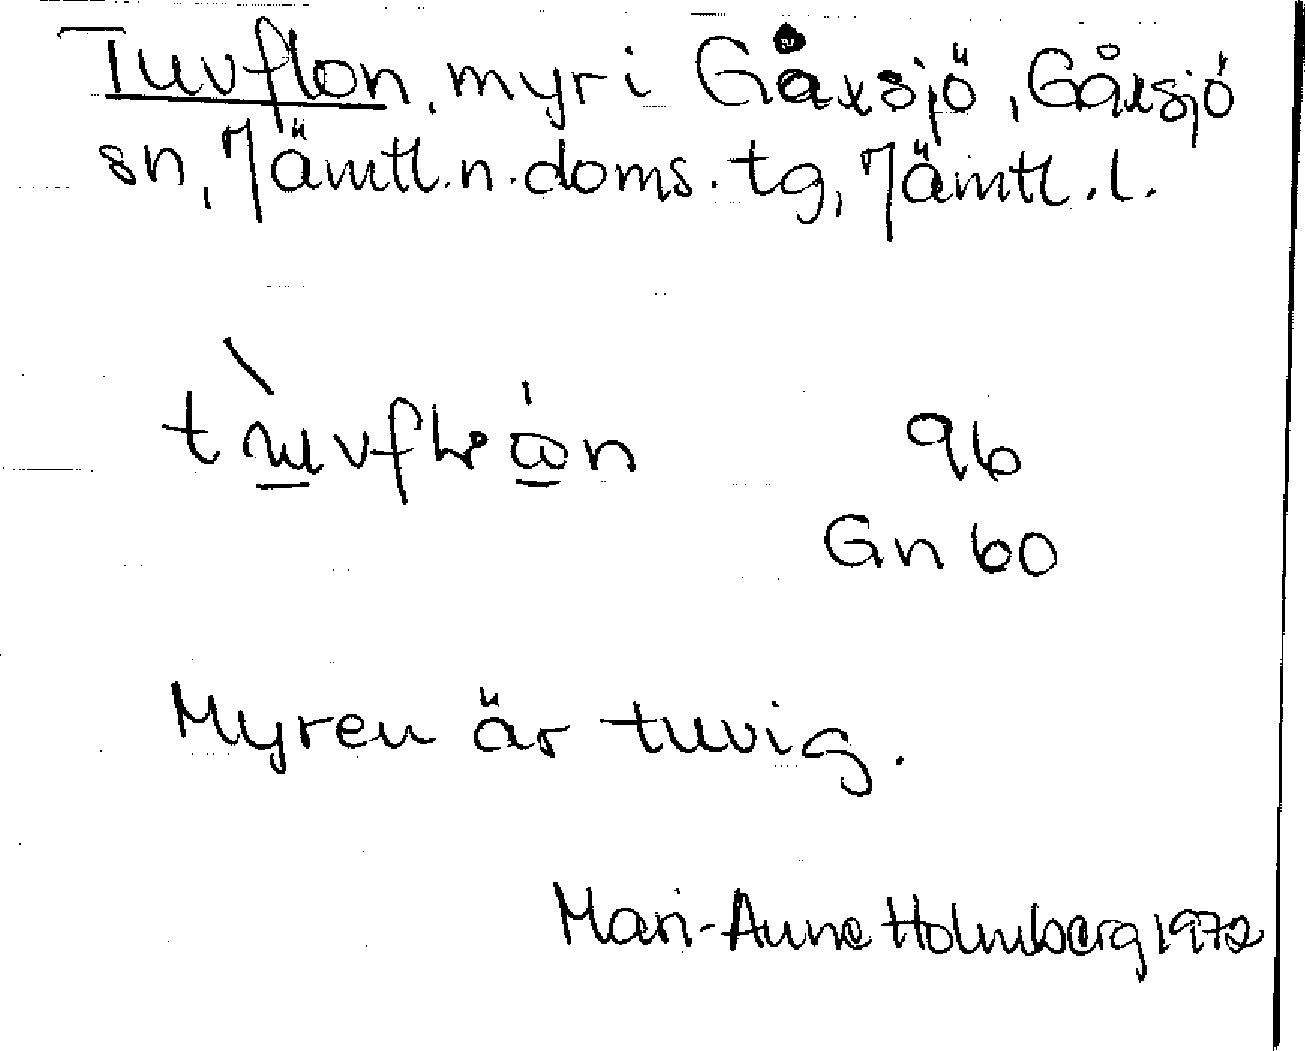 Tuvflon, myr i Gåxsjö, Gåxsjö
sn, Jämtl. n. doms. tg, Jämtl. l.
96
Gn 60
Myren är tuvig.
Mari-Anne Holmberg 1972